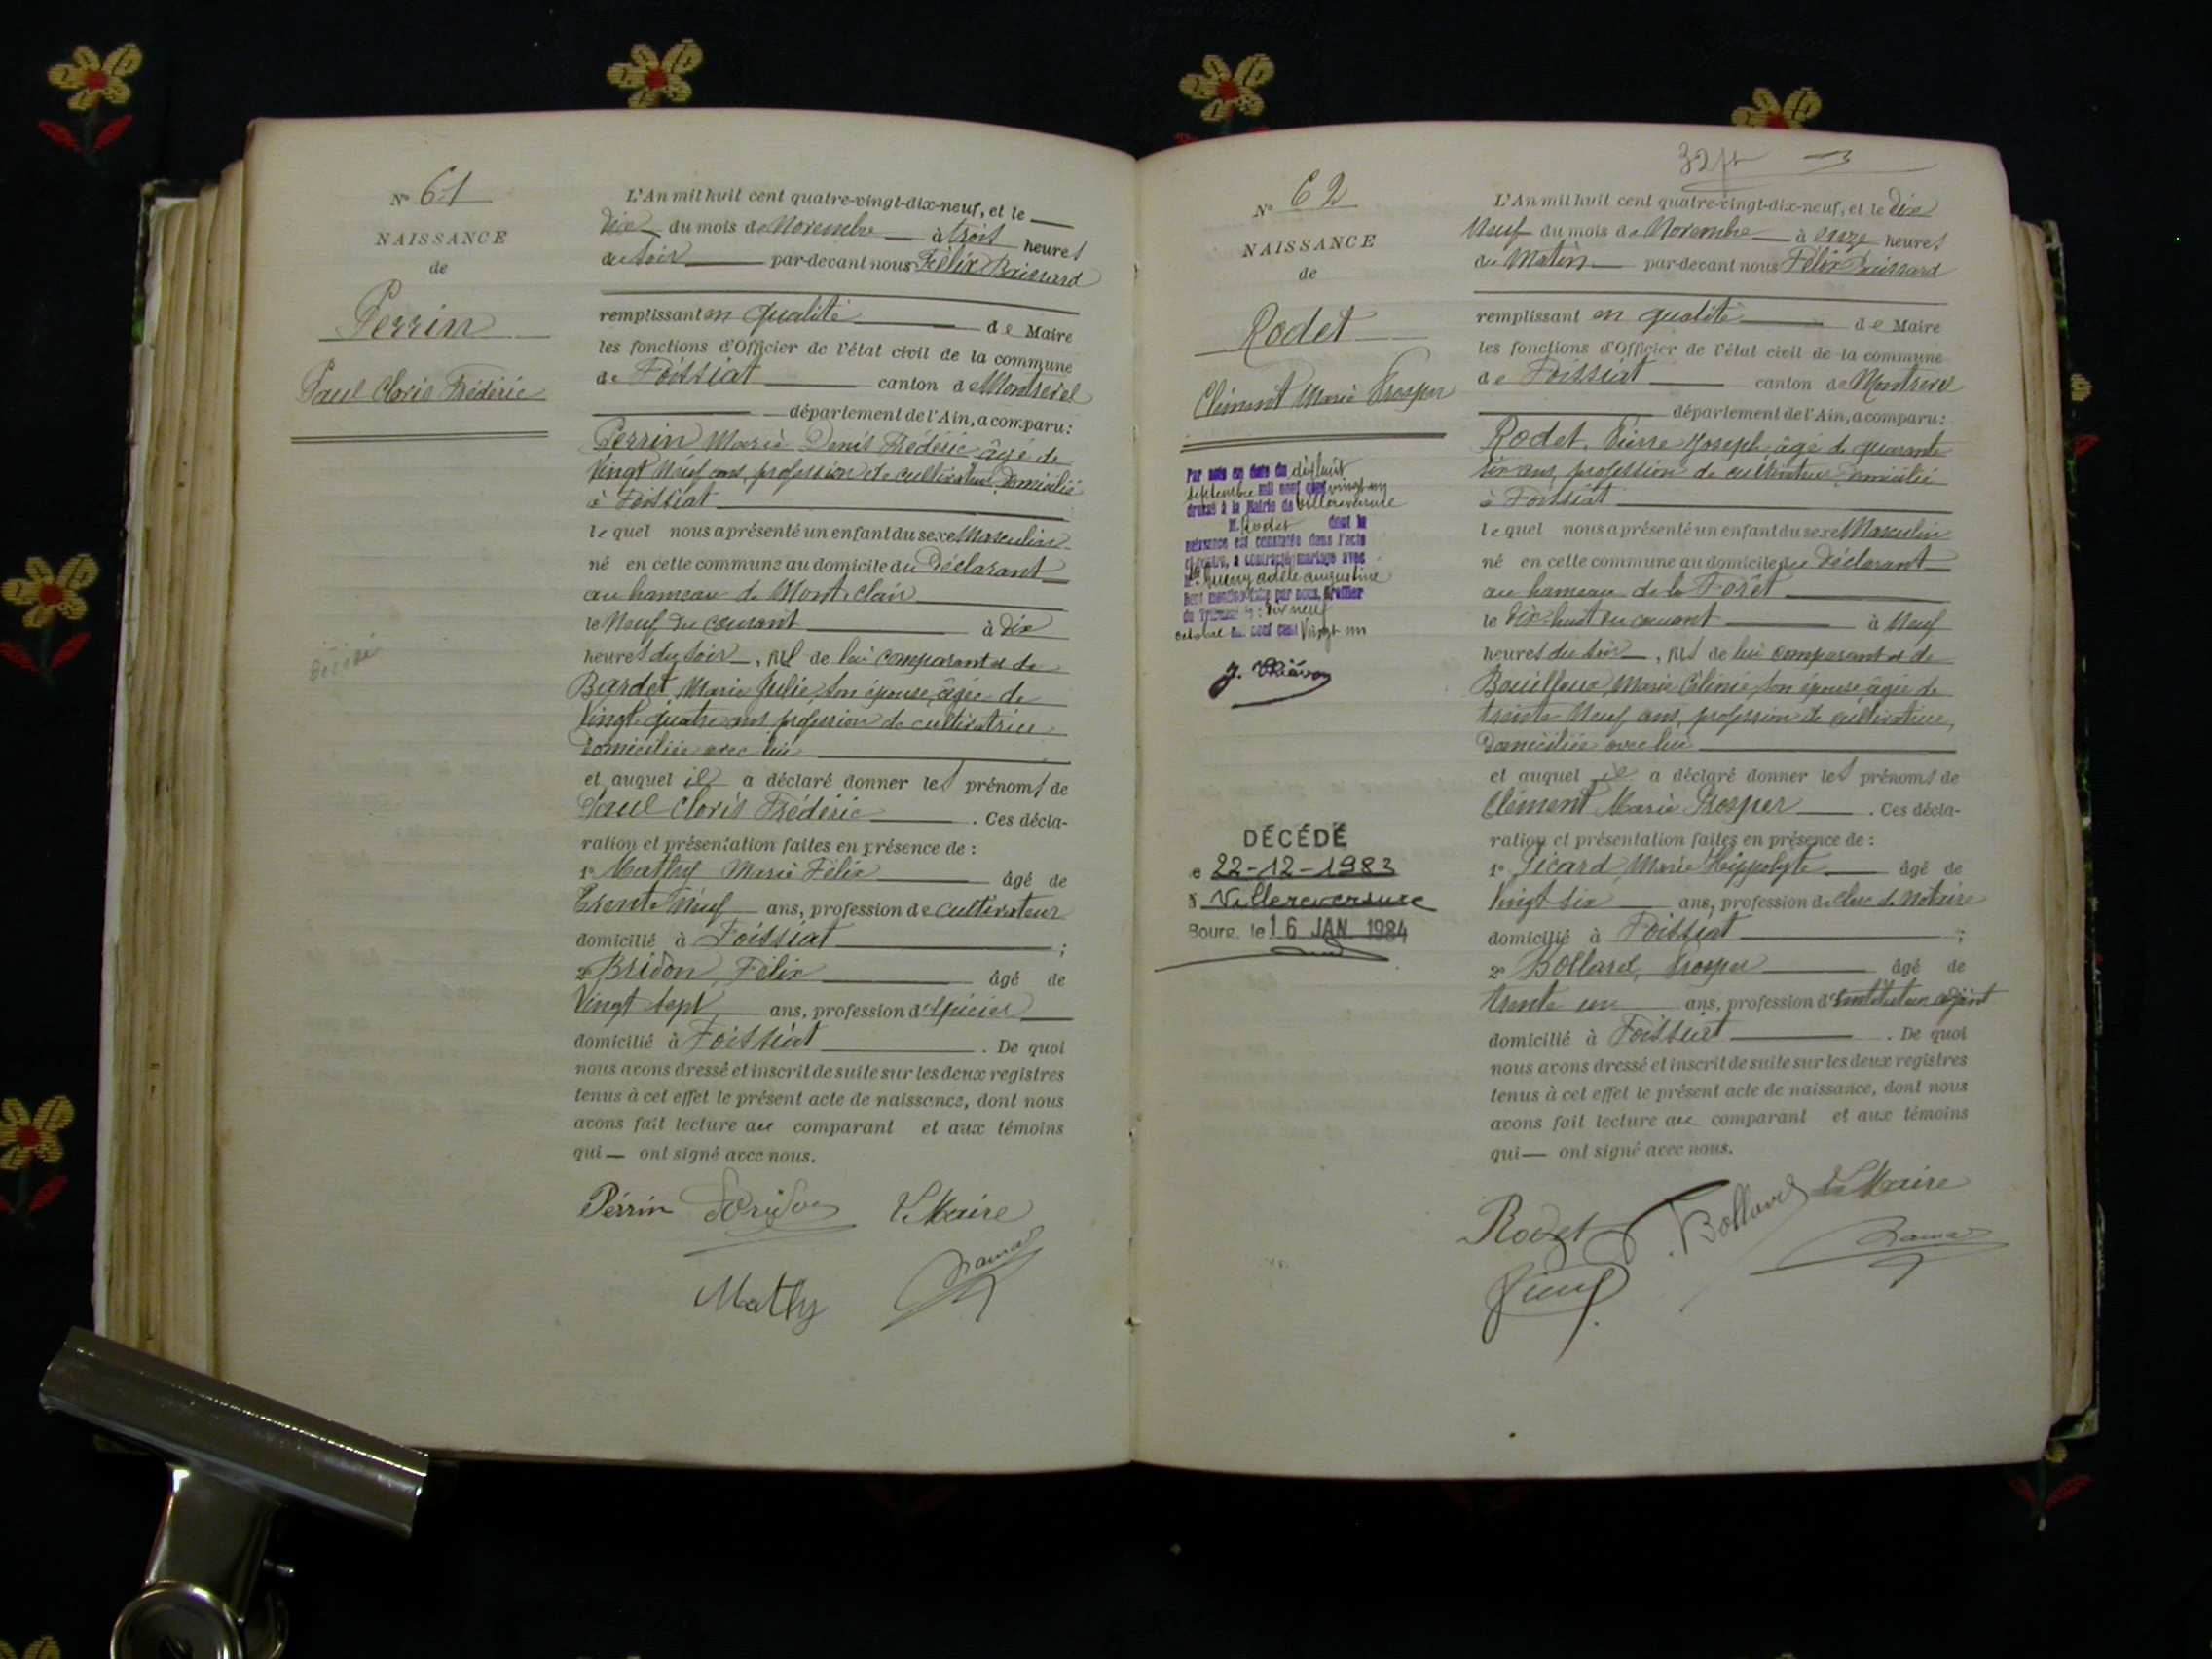 N° 61
NAISSANCE
de
Perrin
Paul Cloris Frédéric
décédé
L'An mil huit cent quatre-vingt-dix-neuf, et le
dix du mois de Novembre à trois heures
du soir par-devant nous Félix
remplissant en qualité de Maire
les fonctions d'Officier de l'état civil de la commune
de Foissiat canton de Montrevel
département de l'Ain, a comparu :
Perrin Marie Denis Frédéric âgé de
vingt neuf ans, profession de cultivateur domicilié
à Foissiat
lequel nous a présenté un enfant du sexe Masculin
né en cette commune au domicile du Déclarant
au hameau de Mont-clair
le Neuf du courant à Dix
heures du soir, fils de lui comparant et de
Bardet Marie Julie son épouse, âgée de
vingt-quatre ans profession de cultivatrice
domiciliée avec lui
et auquel il a déclaré donner les prénoms de
Paul Cloris Frédéric. Ces décla-
ration et présentation faites en présence de :
1° Mathy Marie Félix âgé de
trente neuf ans, profession de cultivateur
domicilié à Foissiat ;
2° Bridon, Félix âgé de
vingt sept ans, profession d'épicier
domicilié à Foissiat. De quoi
nous avons dressé et inscrit de suite sur les deux registres
tenus à cet effet le présent acte de naissance, dont nous
avons fait lecture au comparant et aux témoins
qui — ont signé avec nous.
Perrin Bridon Le Maire
Mathy
32
N° 62
NAISSANCE
de
Rodet
Clément Marie Prosper
Par acte en date du dix huit
septembre mil neuf cent vingt un
dressé à la Mairie de Villereversure
M. Rodet dont la
naissance est constatée dans l'acte
ci-contre, a contracté mariage avec
adèle augustine
Dont mention faite par nous, Greffier
du Tribunal le dix neuf
octobre mil neuf cent vingt un
DÉCÉDÉ
e 22-12-1983
à Villereversure
Bourg, le 16 JAN. 1984
L'An mil huit cent quatre-vingt-dix-neuf, et le dix
Neuf du mois de Novembre à onze heures
du Matin par-devant nous Félix
remplissant en qualité de Maire
les fonctions d'Officier de l'état civil de la commune
de Foissiat canton de Montrevel
département de l'Ain, a comparu :
Rodet, Pierre Joseph, âgé de quarante
six ans, profession de cultivateur domicilié
à Foissiat
lequel nous a présenté un enfant du sexe Masculin
né en cette commune au domicile du Déclarant
au hameau de la Forêt
le Dix-huit du courant à Neuf
heures du soir, fils de lui comparant et de
Marie son épouse âgée de
trente neuf ans, profession de cultivatrice,
domiciliée avec lui
et auquel il a déclaré donner les prénoms de
Clément Marie Prosper. Ces décla-
ration et présentation faites en présence de :
1° Marie Hippolyte âgé de
vingt six ans, profession de clerc de Notaire
domicilié à Foissiat ;
2° Bollard, Prosper âgé de
trente un ans, profession d'instituteur adjoint
domicilié à Foissiat. De quoi
nous avons dressé et inscrit de suite sur les deux registres
tenus à cet effet le présent acte de naissance, dont nous
avons fait lecture au comparant et aux témoins
qui — ont signé avec nous.
Rodet Bollard Le Maire